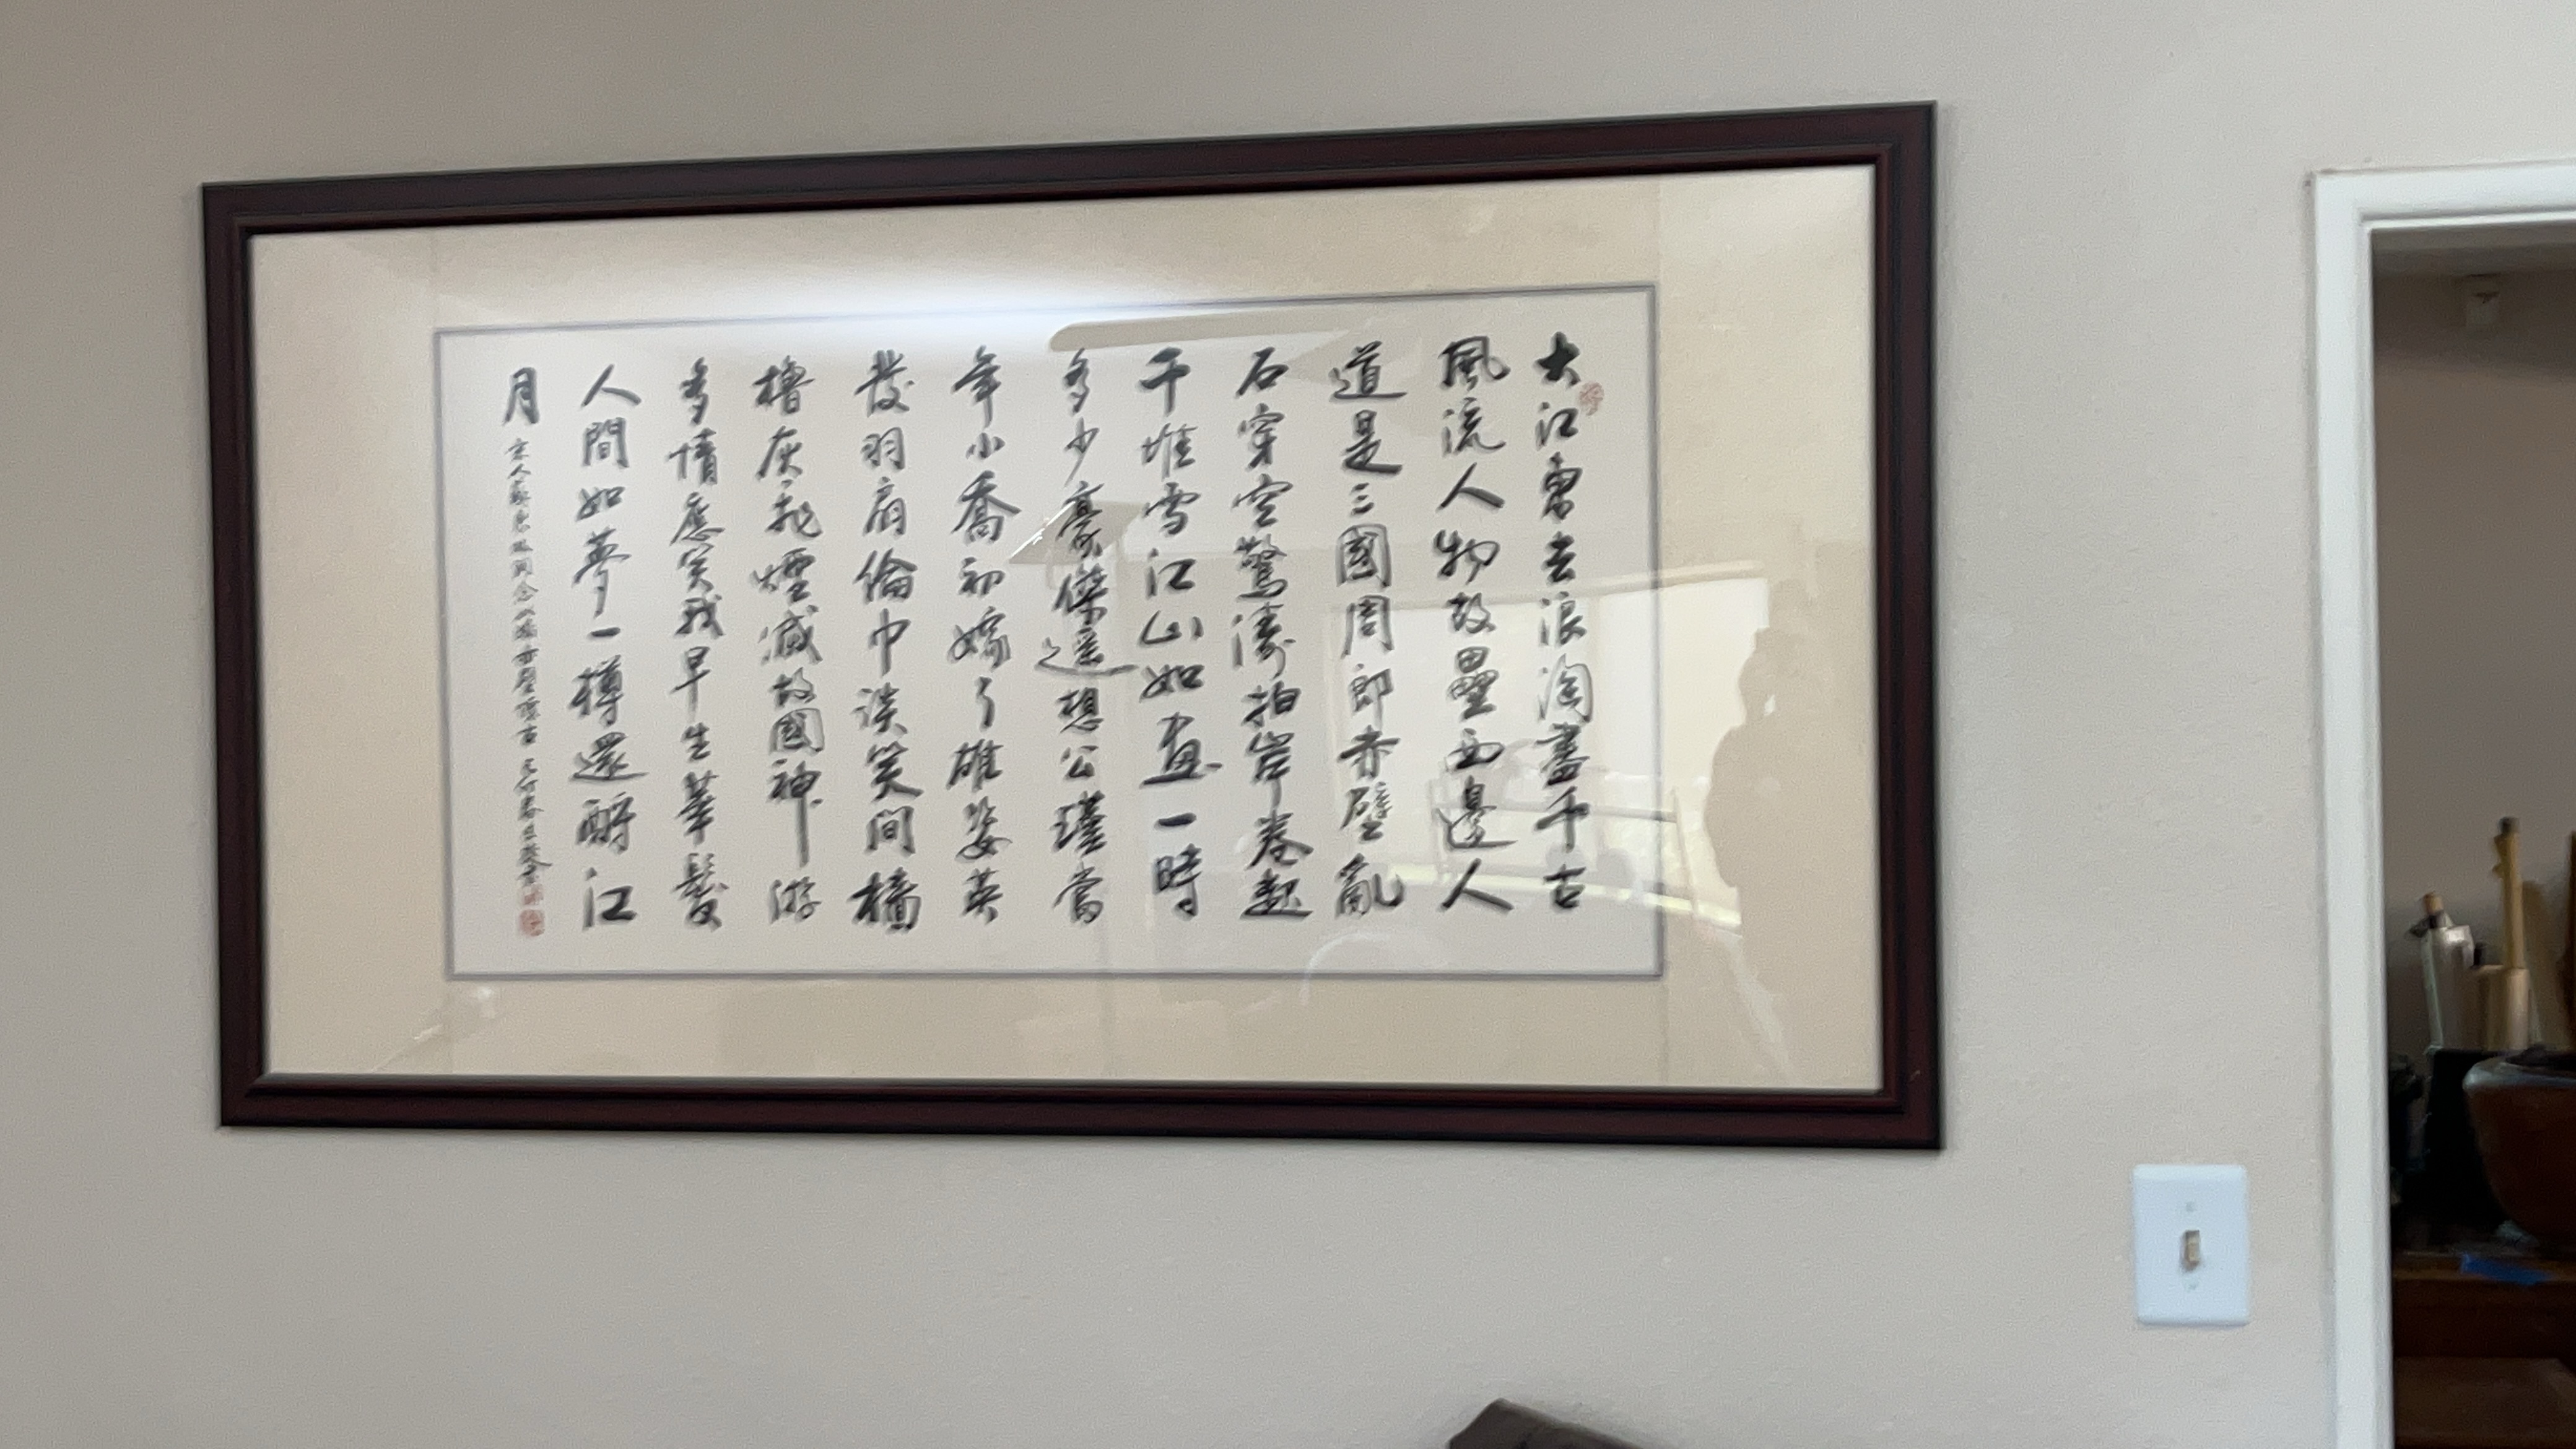 大江東去浪淘盡千古
風流人物故壘西邊人
道是三國周郎赤壁亂
石穿空驚濤拍岸卷起
千堆雪江山如畫一時
多少豪傑遥想公瑾當
年小喬初嫁了雄姿英
發羽扇綸巾談笑間檣
櫓灰飛煙滅故國神游
多情應笑我早生華髮
人間如夢一樽還酹江
月
宋人蘇東坡詞念奴嬌赤壁懷古